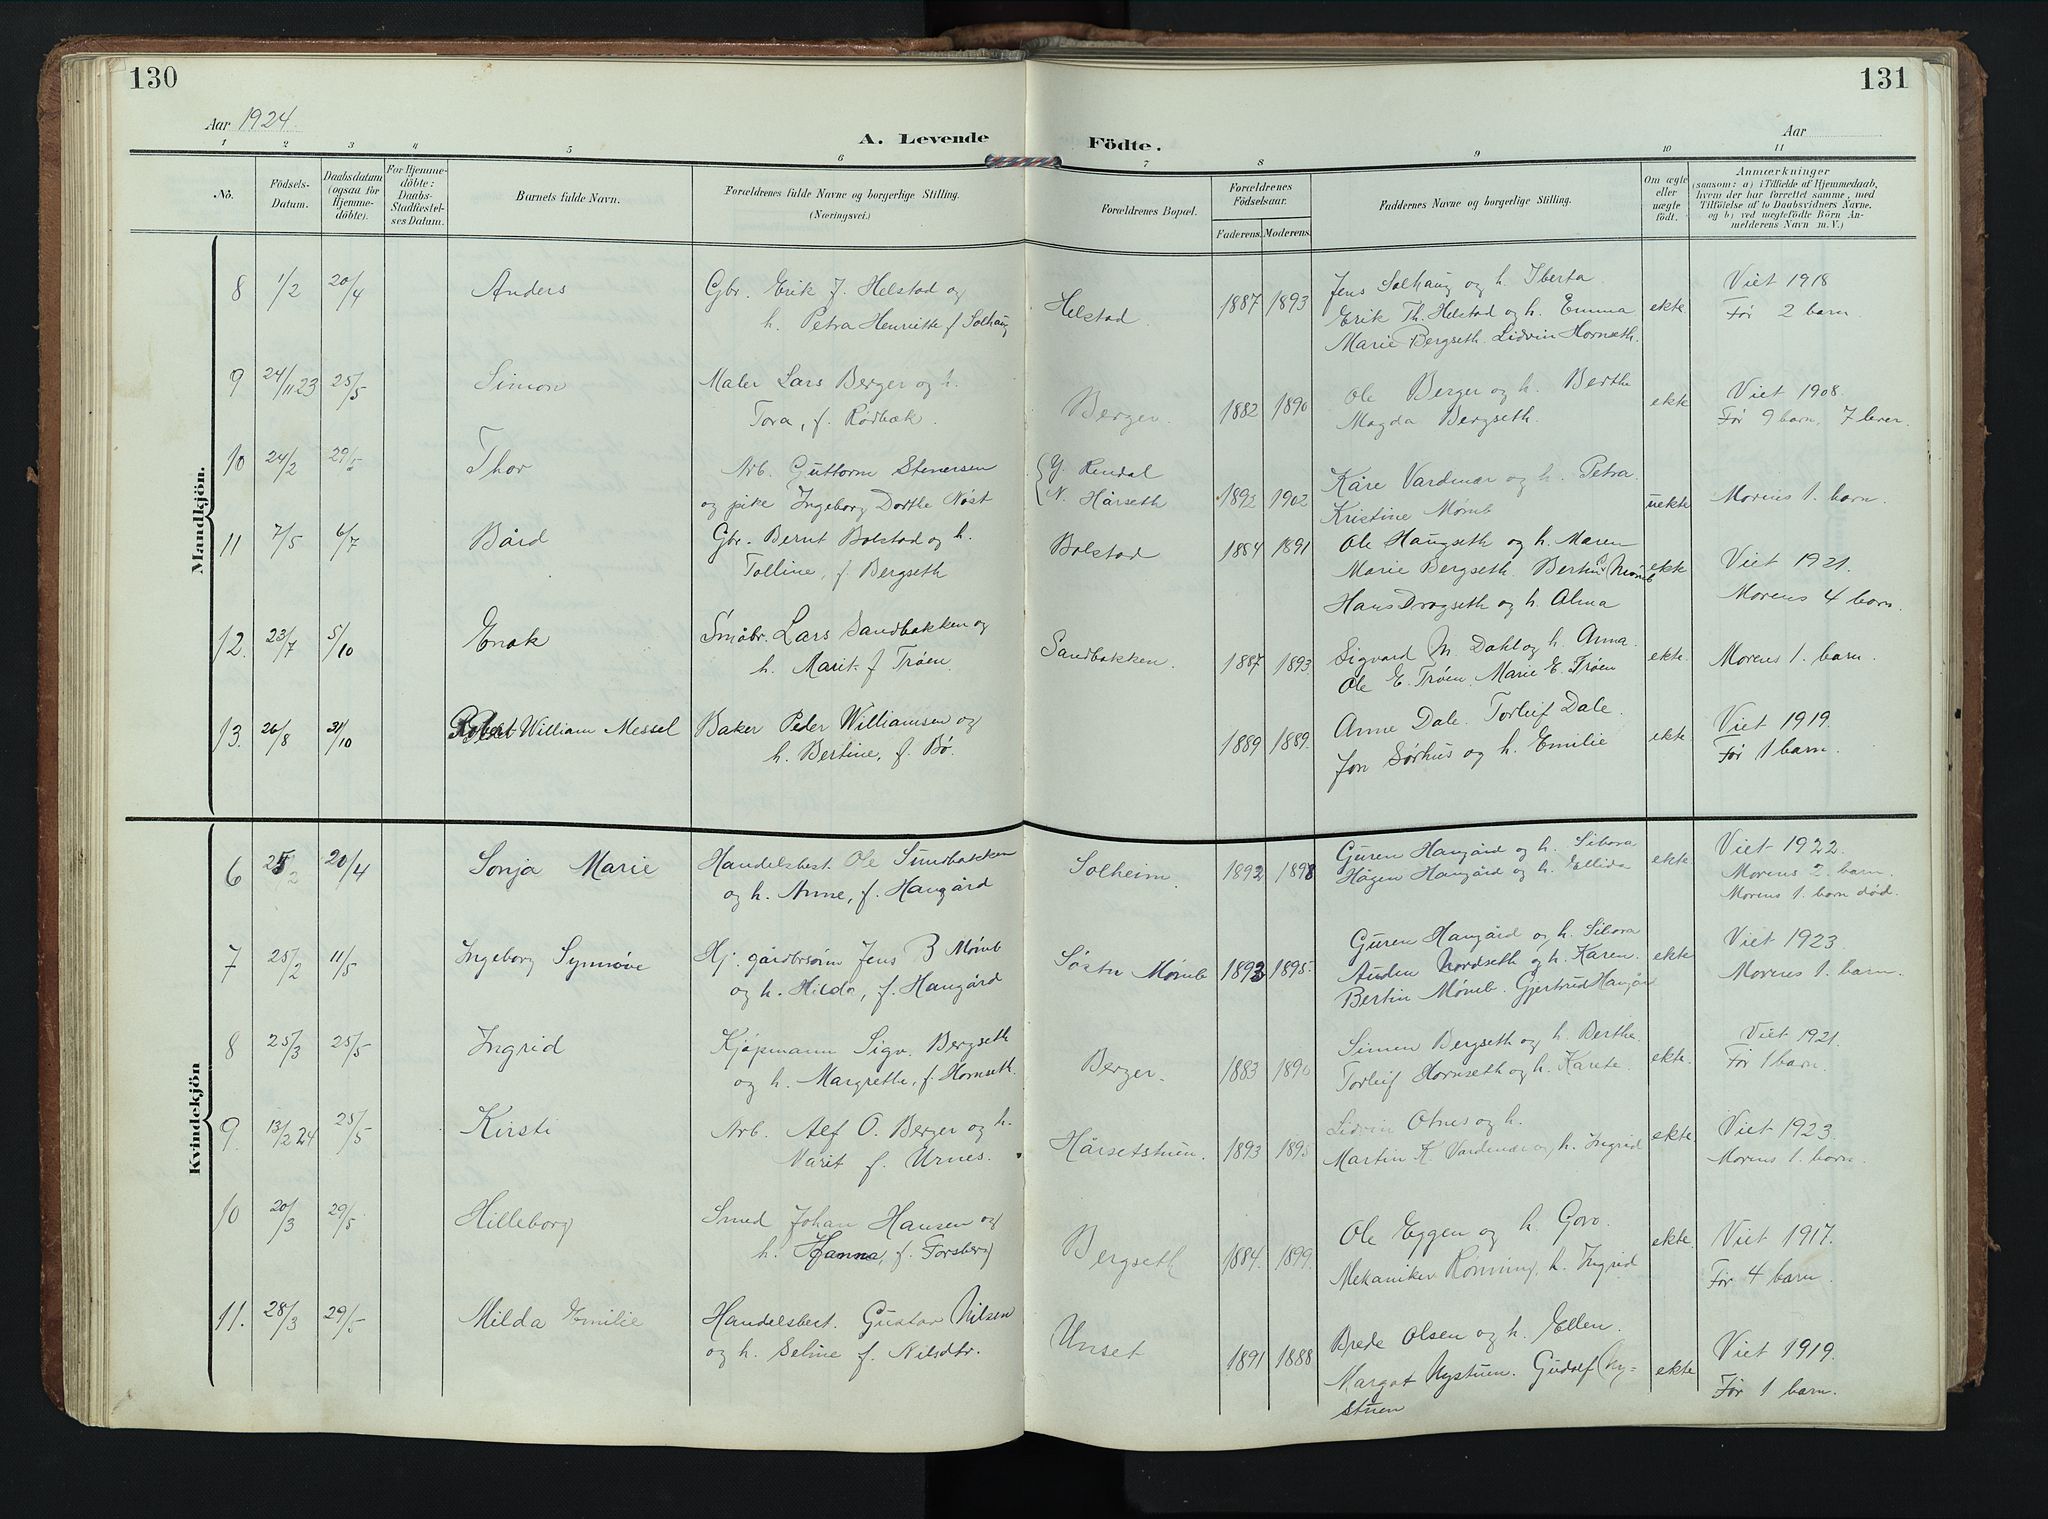 130
131
Aar 1924.
Aar
A. Levende Födte.
1 2 3 4 5 6 7 8 9 10 11
No.
Födsels-
Datum.
Daabsdatum
(ogsaa for
Hjemme-
döbte).
For Hjemme-
döbte:
Daabs-
Stadfæstel-
ses Datum.
Barnets fulde Navn.
Forældrenes fulde Navne og borgerlige Stilling.
(Næringsvei.)
Forældrenes Bopæl.
Forældrenes
Födselsaar.
Faderens. Moderens.
Faddernes Navne og borgerlige Stilling.
Om ægte
eller
uægte
födt.
Anmærkninger
(saasom: a) i Tilfælde af Hjemmedaab,
hvem der har forrettet samme, med
Tilföielse af to Daabsvidners Navne,
og b) ved uægtefödte Börn An-
melderens Navn m. V.)
Mandkjön.
8 1/2 20/4 Anders Gbr. Erik J. Helstad og
h. Petra Henriette f. Solhaug
Helstad 1887 1893
Jens Solhaug og h. Iberta
Erik Th. Helstad og h. Emma
Marie Bergseth. Lidvin Hornseth.
ekte
Viet 1918
Før 2 barn.
9 24/11 23 25/5 Simon Maler Lars Berger og h.
Tora, f. Rødbæk.
Berger. 1882 1890
Ole Berger og h. Berthe
Magda Bergseth.
ekte
Viet 1908.
Før 9 barn, 7 lever.
10 24/2 29/5 Thor Arb. Guttorm Stenersen
og pike Ingeborg Dorthe Nøst
Y. Rendal
N. Hårseth
1892 1902
Kåre Vardenær og h. Petra
Kristine Mømb
uekte
Morens 1. barn.
11 7/5 6/7 Bård Gbr. Bernt Bolstad og h.
Tolline, f. Bergseth
Bolstad 1884 1891
Ole Haugseth og h. Maren
Marie Bergseth. Bertin Mømb
Hans Dragseth og h. Alma
ekte
Viet 1921.
Morens 4 barn.
12. 23/7 5/10 Enok Småbr. Lars Sandbakken og
h. Marit f. Trøen.
Sandbakken. 1887 1893
Sigvard M. Dahl og h. Anna.
Ole E. Trøen. Marie E. Trøen
ekte.
Morens 1. barn.
13. 26/8 31/10 Robert William Messel Baker Peder Williamsen og
h. Bertine, f. Bø.
1889 1889.
Anne Dale. Torleif Dale.
Jon Sørhus og h. Emilie
ekte.
Viet 1919.
Før 1 barn.
Kvindekjön
6 25/2 20/4 Sonja Marie Handelsbest. Ole Sundbakken
og h. Anne, f. Haugård
Solheim. 1892 1898
Guren Haugård og h. Sibora
Hågen Haugård og h. Ellida
ekte.
Viet 1922.
Morens 2. barn.
Morens 1. barn død.
7 25/2 11/5 Ingeborg Synnøve Hj. gårdbrsønn Jens B Mømb
og h. Hilda, f. Haugård
Søstu Mømb 1893 1895.
Guren Haugård og h. Sibora
Auden Nordseth og h. Karen.
Bertin Mømb. Gjertrud Haugår
ekte
Viet 1923.
Morens 1. barn.
8 25/3 25/5 Ingrid Kjøpmann Sigv. Bergseth
og h. Margrethe, f. Hornseth.
Berger. 1883 1890
Simen Bergseth og h. Berthe.
Torleif Hornseth og h. Karete.
ekte.
Viet 1921.
Før 1 barn.
9. 13/2 24 25/5 Kirsti Arb. Alf O. Berger og h.
Marit f. Urnes.
Hårsetstuen. 1893 1895
Lidvin Otnes og h.
Martin K. Vardenær og h. Ingrid
ekte
Viet 1923.
Morens 1. barn.
10 20/3 29/5 Hilleborg Smed Johan Hansen og
h. Hanna, f. Forsberg
Bergseth 1884. 1899.
Ole Eggen og h. Goro.
Mekaniker Rønning, h. Ingrid
ekte.
Viet 1917.
Før 4 barn.
11. 28/3 29/5 Milda Emilie Handelsbest. Gustav Nilsen
og h. Seline f. Nilsdtr.
Unset 1891 1888
Brede Olsen og h. Ellen.
Margot Nystuen. Gudolf Ny-
stuen
ekte
Viet 1919.
Før 1 barn.